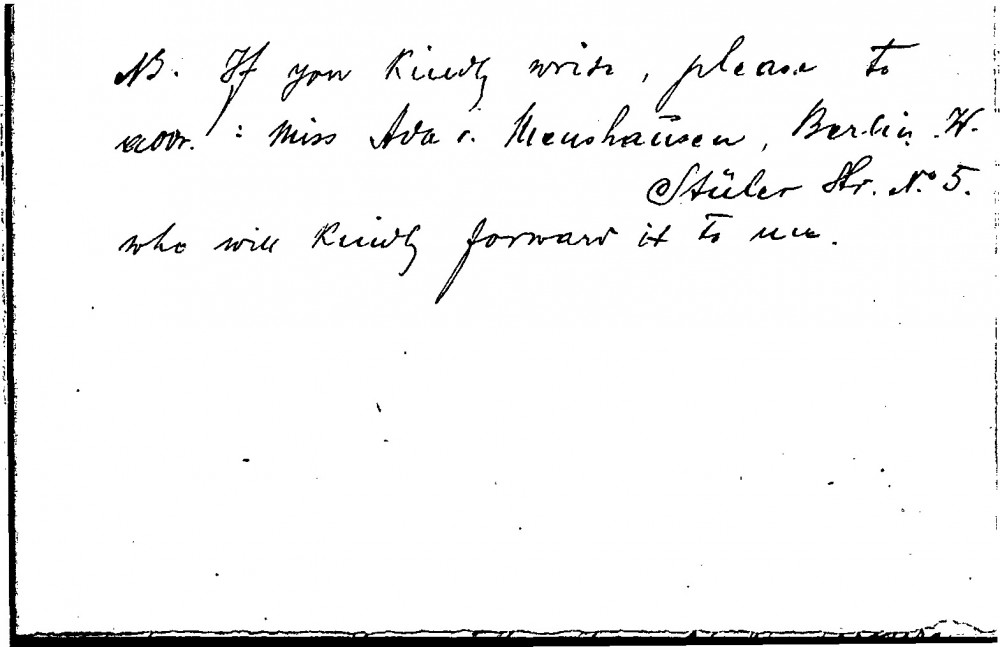 NB. If you kindly write, please to
addr.: Miss Ada v. Meushausen, Berlin. W.
Stüler Str. No 5.
who will kindly forward it to me.